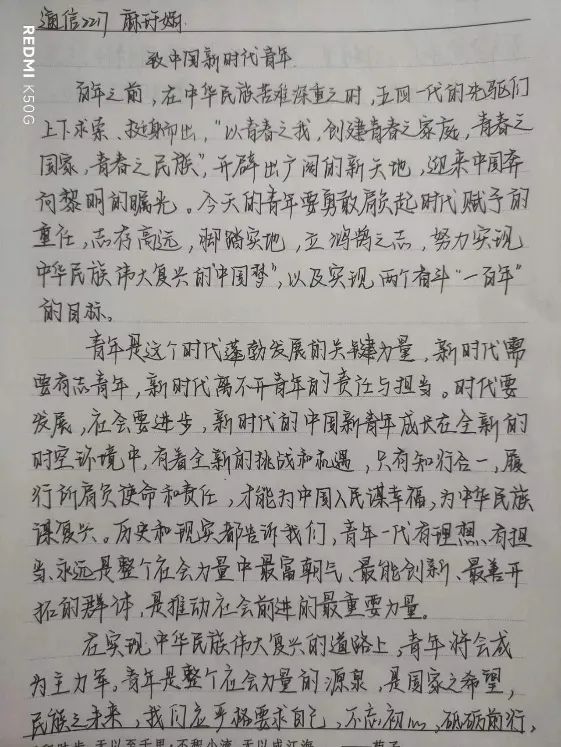 通信2217 麻
致中国新时代青年
百年之前,在中华民族苦难深重之时,五四一代的先驱们
上下求索、挺身而出,“以青春之我,创建青春之家庭,青春之
国家,青春之民族”,开辟出广阔的新天地,迎来中国奔
向黎明的曙光。今天的青年要勇敢肩负起时代赋予的
重任,志存高远,脚踏实地,立鸿鹄之志,努力实现
中华民族伟大复兴的“中国梦”,以及实现两个奋斗“一百年”
的目标。
青年是这个时代蓬勃发展的关键力量,新时代需
要有志青年,新时代离不开青年的责任与担当。时代要
发展,社会要进步,新时代的中国新青年成长在全新的
时空环境中,有着全新的挑战和机遇,只有知行合一,履
行所肩负使命和责任,才能为中国人民谋幸福,为中华民族
谋复兴。历史和现实都告诉我们,青年一代有理想、有担
当、永远是整个社会力量中最富朝气、最能创新、最善开
拓的群体,是推动社会前进的最重要力量。
在实现中华民族伟大复兴的道路上,青年将会成
为主力军。青年是整个社会力量的源泉,是国家之希望,
民族之未来,我们应严格要求自己,不忘初心,砥砺前行,
REDMI K50G